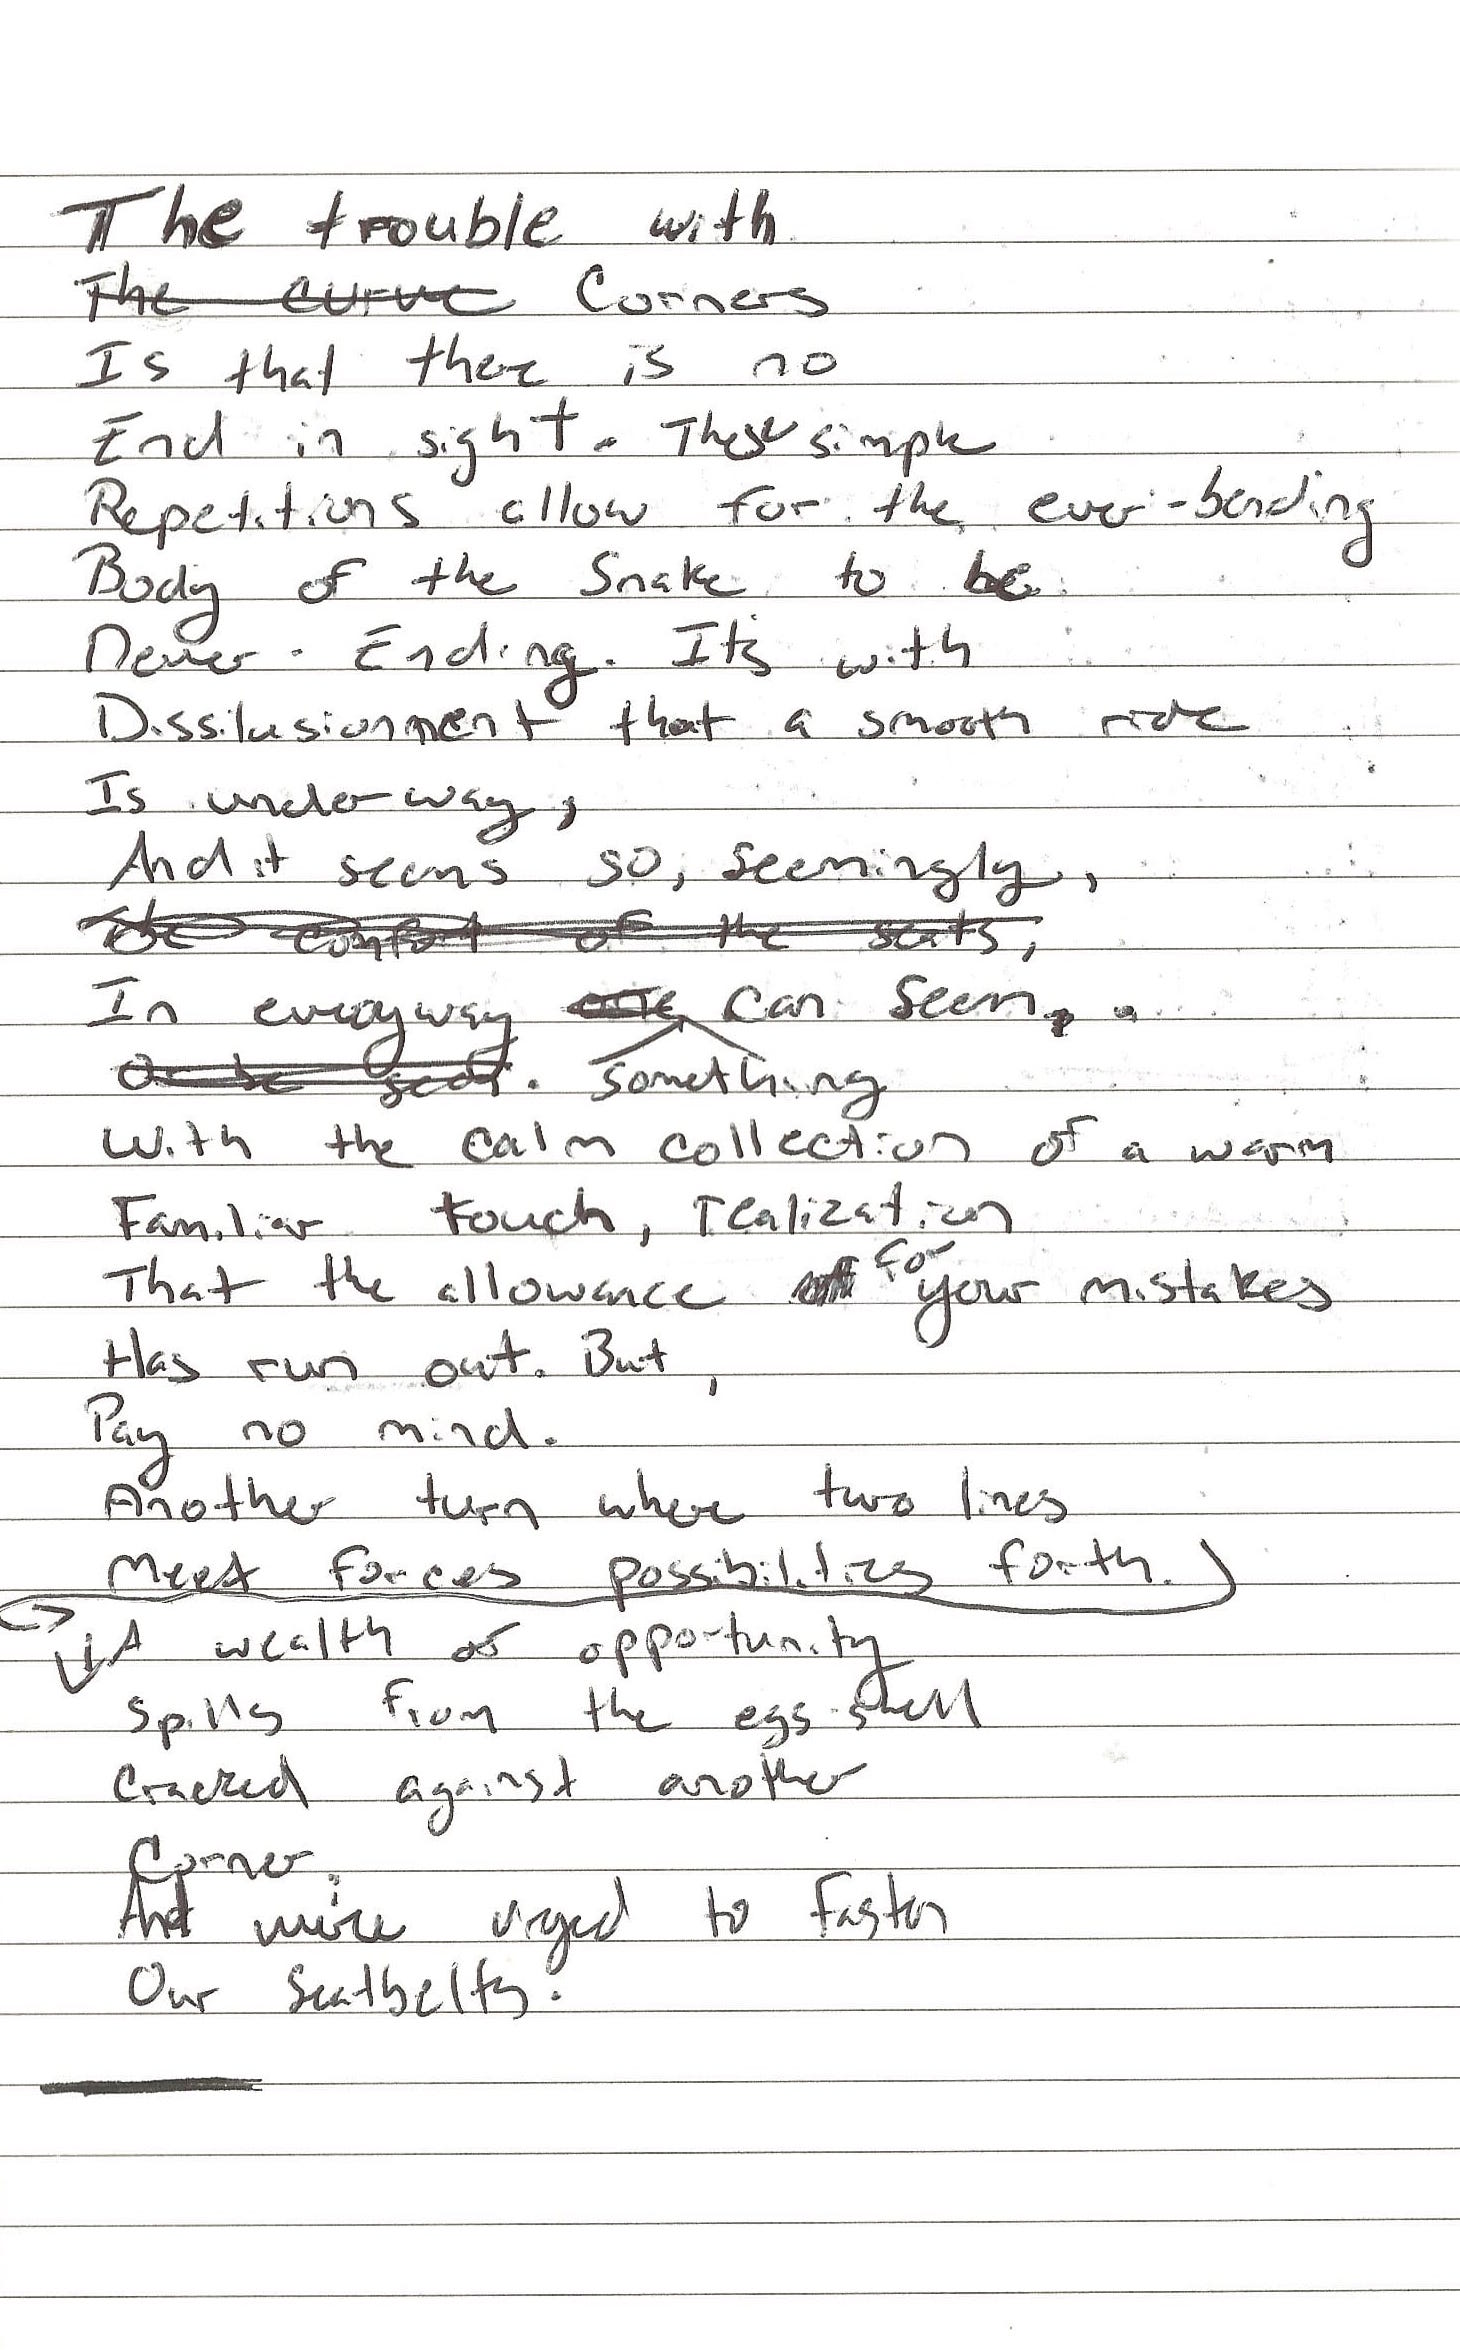 The trouble with
The curve Corners
Is that there is no
End in sight. These simple
Repetitions allow for the ever-bending
Body of the Snake to be
Never-Ending. Its with
Dissilusionment that a smooth ride
Is underway,
And it seems so, seemingly,
The comfort of the seats,
In everyway one can seem..
Or be seen. something
With the calm collection of a warm
Familiar touch, realization
That the allowance for your mistakes
Has run out. But,
Pay no mind.
Another turn where two lines
Meet forces possibilities forth.
A wealth of opportunity
Spills from the egg-shell
Cracked against another
Corner,
And we're urged to fasten
Our Seatbelts.